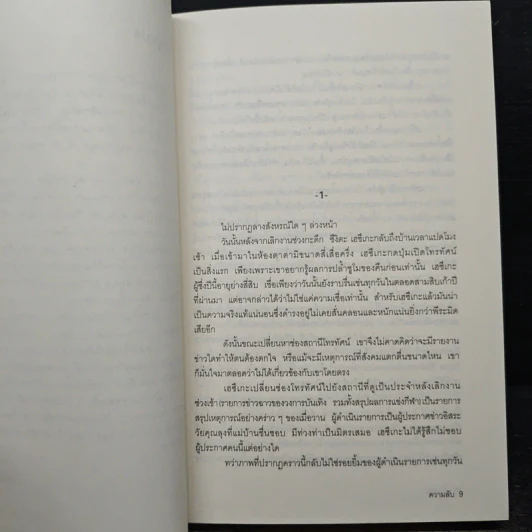 -1-
ไม่ปรากฏลางสังหรณ์ใด ๆ ล่วงหน้า
วันนั้นหลังจากเลิกงานช่วงกะดึก ซึงิตะ เฮซึเกะกลับถึงบ้านเวลาแปดโมง
เช้า เมื่อเข้ามาในห้องตาตามิขนาดสี่เสื่อครึ่ง เฮซึเกะกดปุ่มเปิดโทรทัศน์
เป็นสิ่งแรก เพียงเพราะเขาอยากรู้ผลการปล้ำซูโมของคืนก่อนเท่านั้น เฮซึเกะ
ผู้ซึ่งปีนี้อายุย่างสี่สิบ เชื่อเพียงว่าวันนั้นยังราบรื่นเช่นทุกวันในตลอดสามสิบเก้าปี
ที่ผ่านมา แต่อาจกล่าวได้ว่าไม่ใช่แค่ความเชื่อเท่านั้น สำหรับเฮซึเกะแล้วมันน่า
เป็นความจริงแท้แน่นอนซึ่งดำรงอยู่ไม่เคยสั่นคลอนและหนักแน่นยิ่งกว่าพีระมิด
เสียอีก
ดังนั้นขณะเปลี่ยนหาช่องสถานีโทรทัศน์ เขาจึงไม่คาดคิดว่าจะมีรายงาน
ข่าวใดทำให้ตนต้องตกใจ หรือแม้จะมีเหตุการณ์ที่สังคมแตกตื่นขนาดไหน เขา
ก็มั่นใจมาตลอดว่าไม่ได้เกี่ยวข้องกับเขาโดยตรง
เฮซึเกะเปลี่ยนช่องโทรทัศน์ไปยังสถานีที่ดูเป็นประจำหลังเลิกงาน
ช่วงเช้า (รายการข่าวฉาวของวงการบันเทิง รวมทั้งสรุปผลการแข่งกีฬา) เป็นรายการ
สรุปเหตุการณ์อย่างคร่าว ๆ ของเมื่อวาน ผู้ดำเนินรายการเป็นผู้ประกาศข่าวอิสระ
วัยคุณลุงที่แม่บ้านชื่นชอบ มีท่วงท่าเป็นมิตรเสมอ เฮซึเกะไม่ได้รู้สึกไม่ชอบ
ผู้ประกาศคนนี้แต่อย่างใด
ทว่าภาพที่ปรากฏคราวนี้กลับไม่ใช่รอยยิ้มของผู้ดำเนินรายการเช่นทุกวัน
ความลับ 9